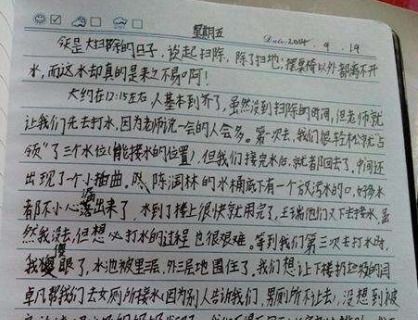 星期五
Date 2014. 9. 19
今天是大扫除的日子，说起扫除，除了扫地，摆桌椅以外都离不开
水，而这水却真的是来之不易啊！
大约在12:15左右人基本到齐了，虽然没到扫除的时间，但老师就
让我们先去打水，因为老师说一会的人会多。第一次去，我们很轻松就“占
领”了三个水位（能接水的位置），但我们接完水后，就都回去了，中间还
出现了一个小插曲，陈润林的水桶底下有一个放污水的口，好多水
都不小心洒出来了，水到了楼上很快就用完了，王瑞他们又下去接水，虽
然我没去，但想必打水的过程也很艰难，等到我们第三次去打水时，
我傻眼了，水池被里三层，外三层地围住了，我们想让下楼扔垃圾的闫
卓凡帮我们去女厕所接水（因为别人告诉我们，男厕所不让去），没想到被